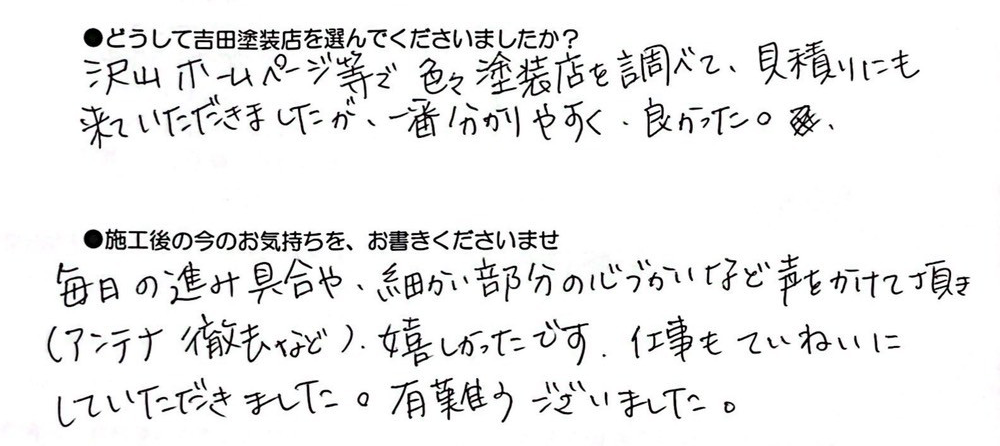 ●どうして吉田塗装店を選んでくださいましたか？
沢山ホームページ等で色々塗装店を調べて、見積りにも
来ていただきましたが、一番分かりやすく、良かった。
●施工後の今のお気持ちを、お書きくださいませ
毎日の進み具合や、細かい部分の心づかいなど声をかけて頂き
（アンテナ撤去など）、嬉しかったです。仕事もていねいに
していただきました。有難うございました。